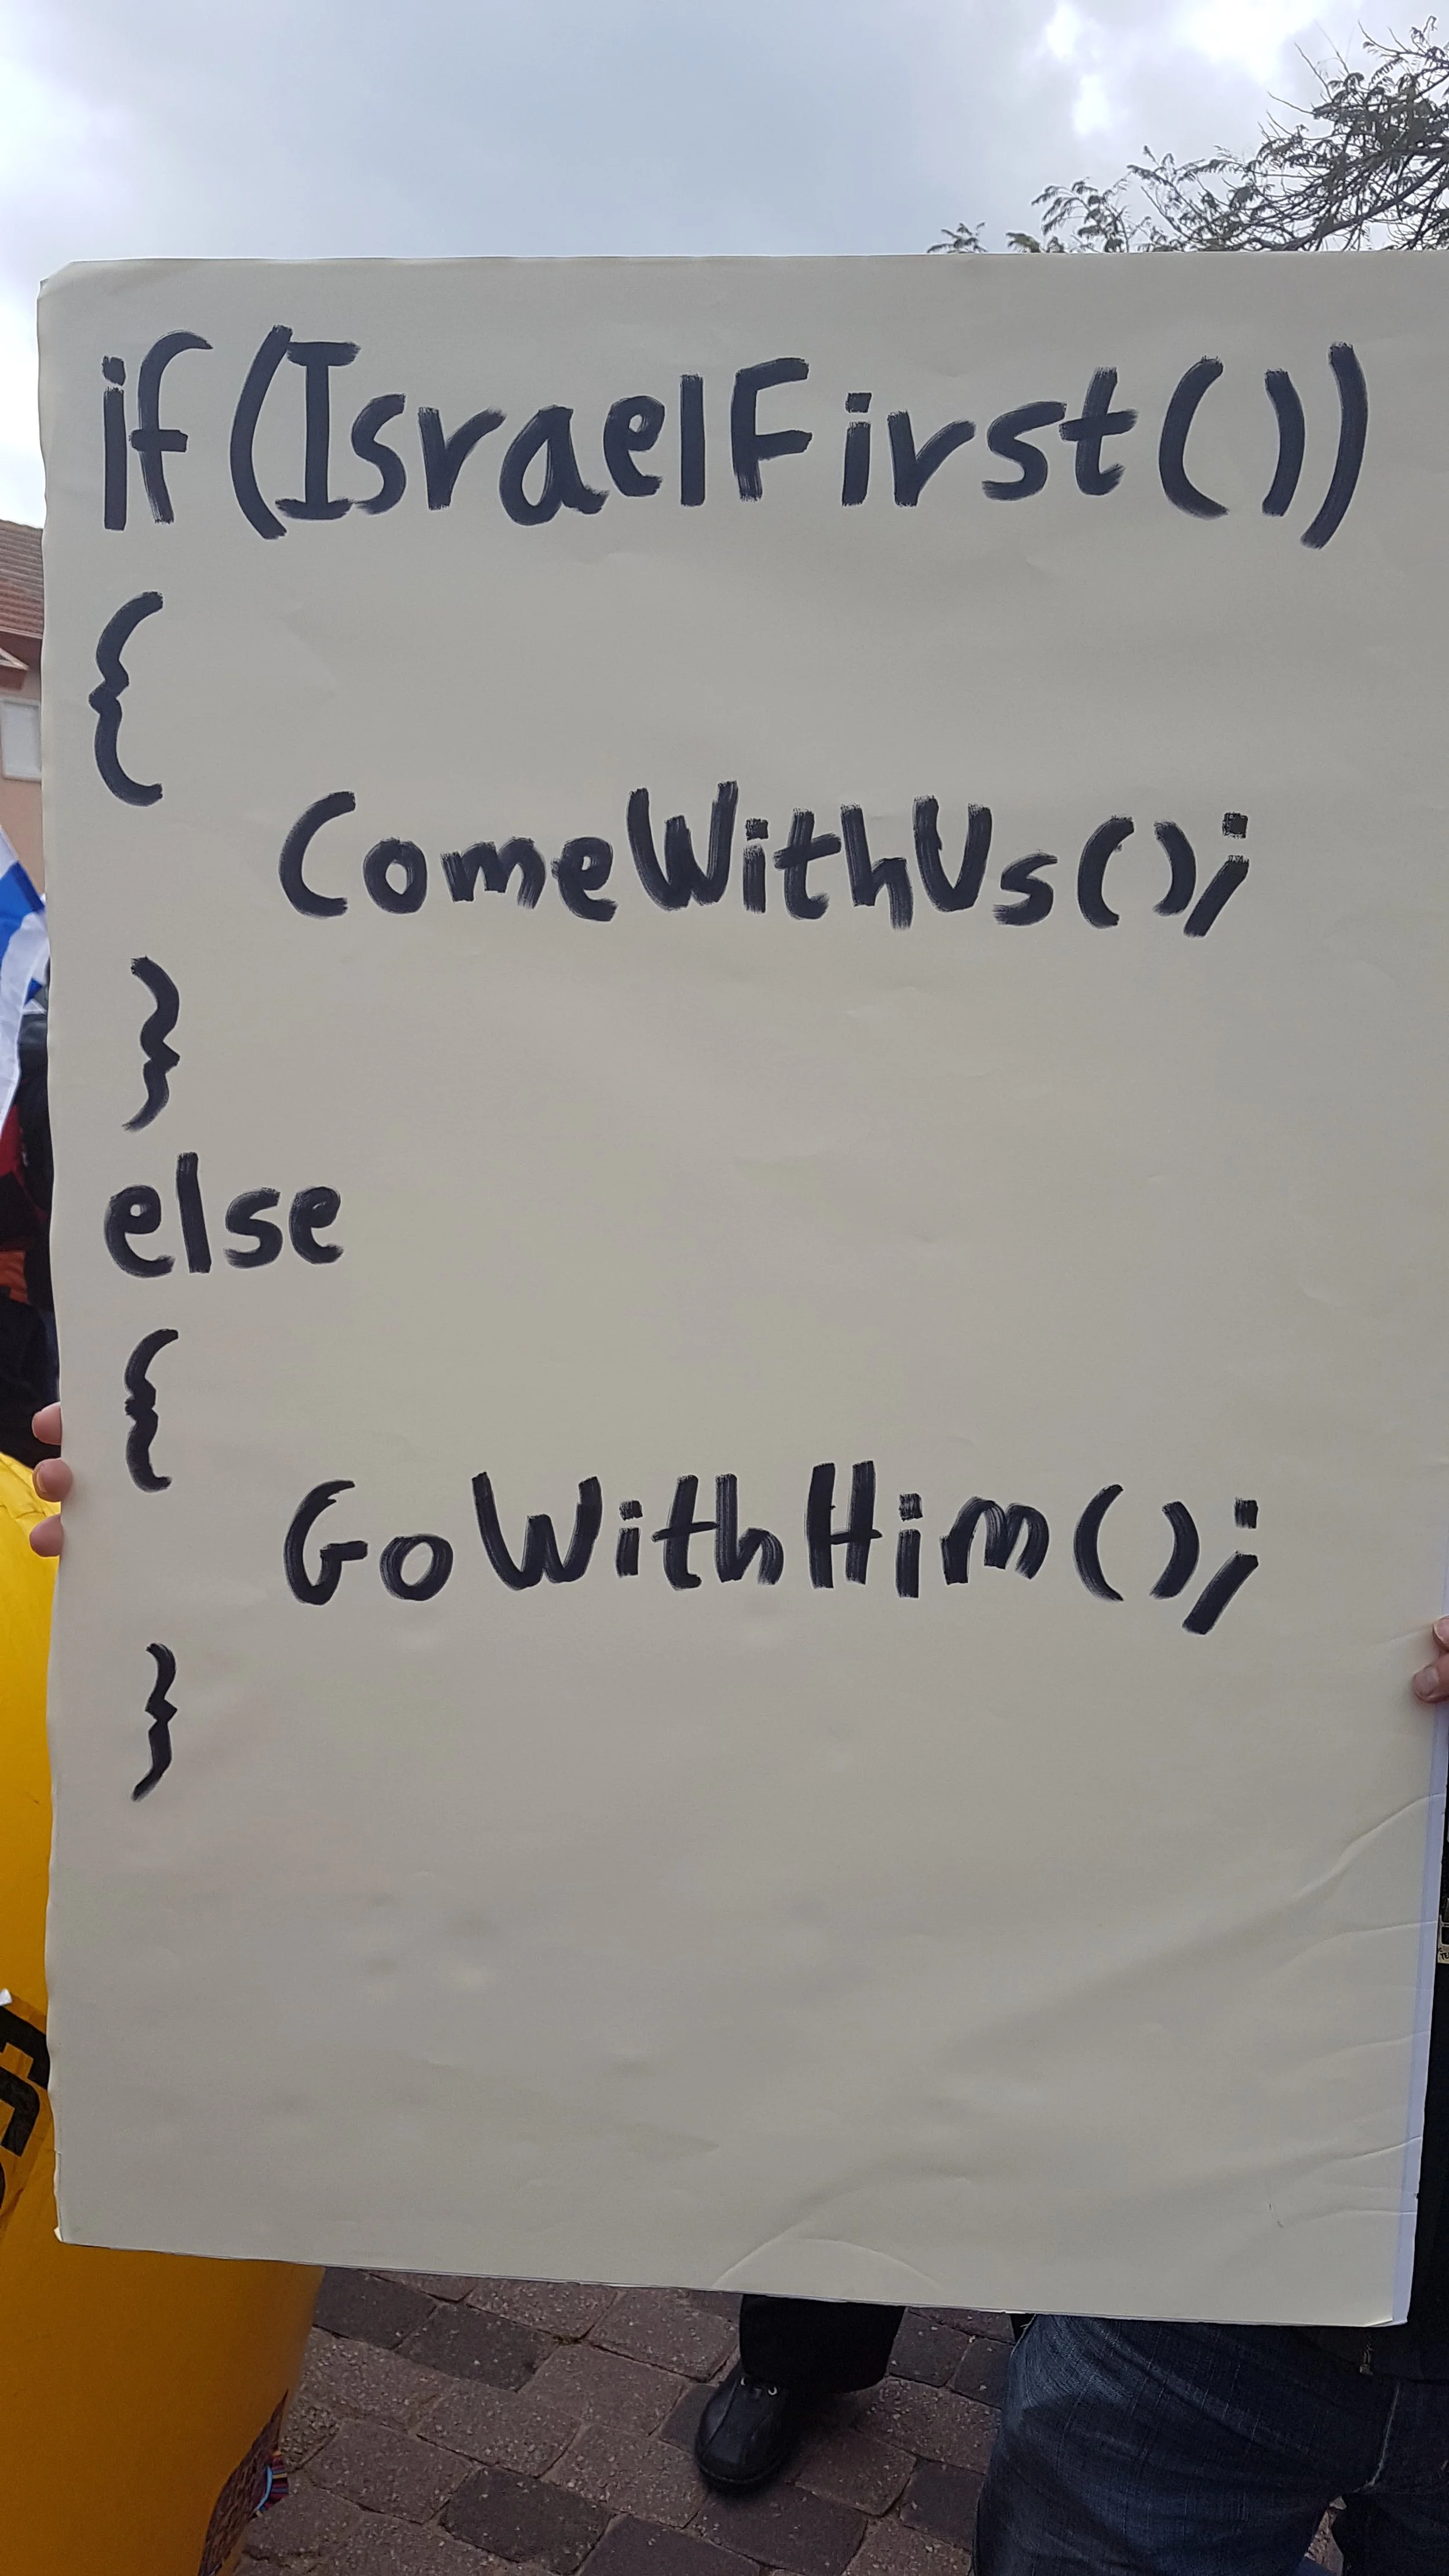 if(IsraelFirst())
{
ComeWithUs();
}
else
{
GoWithHim();
}